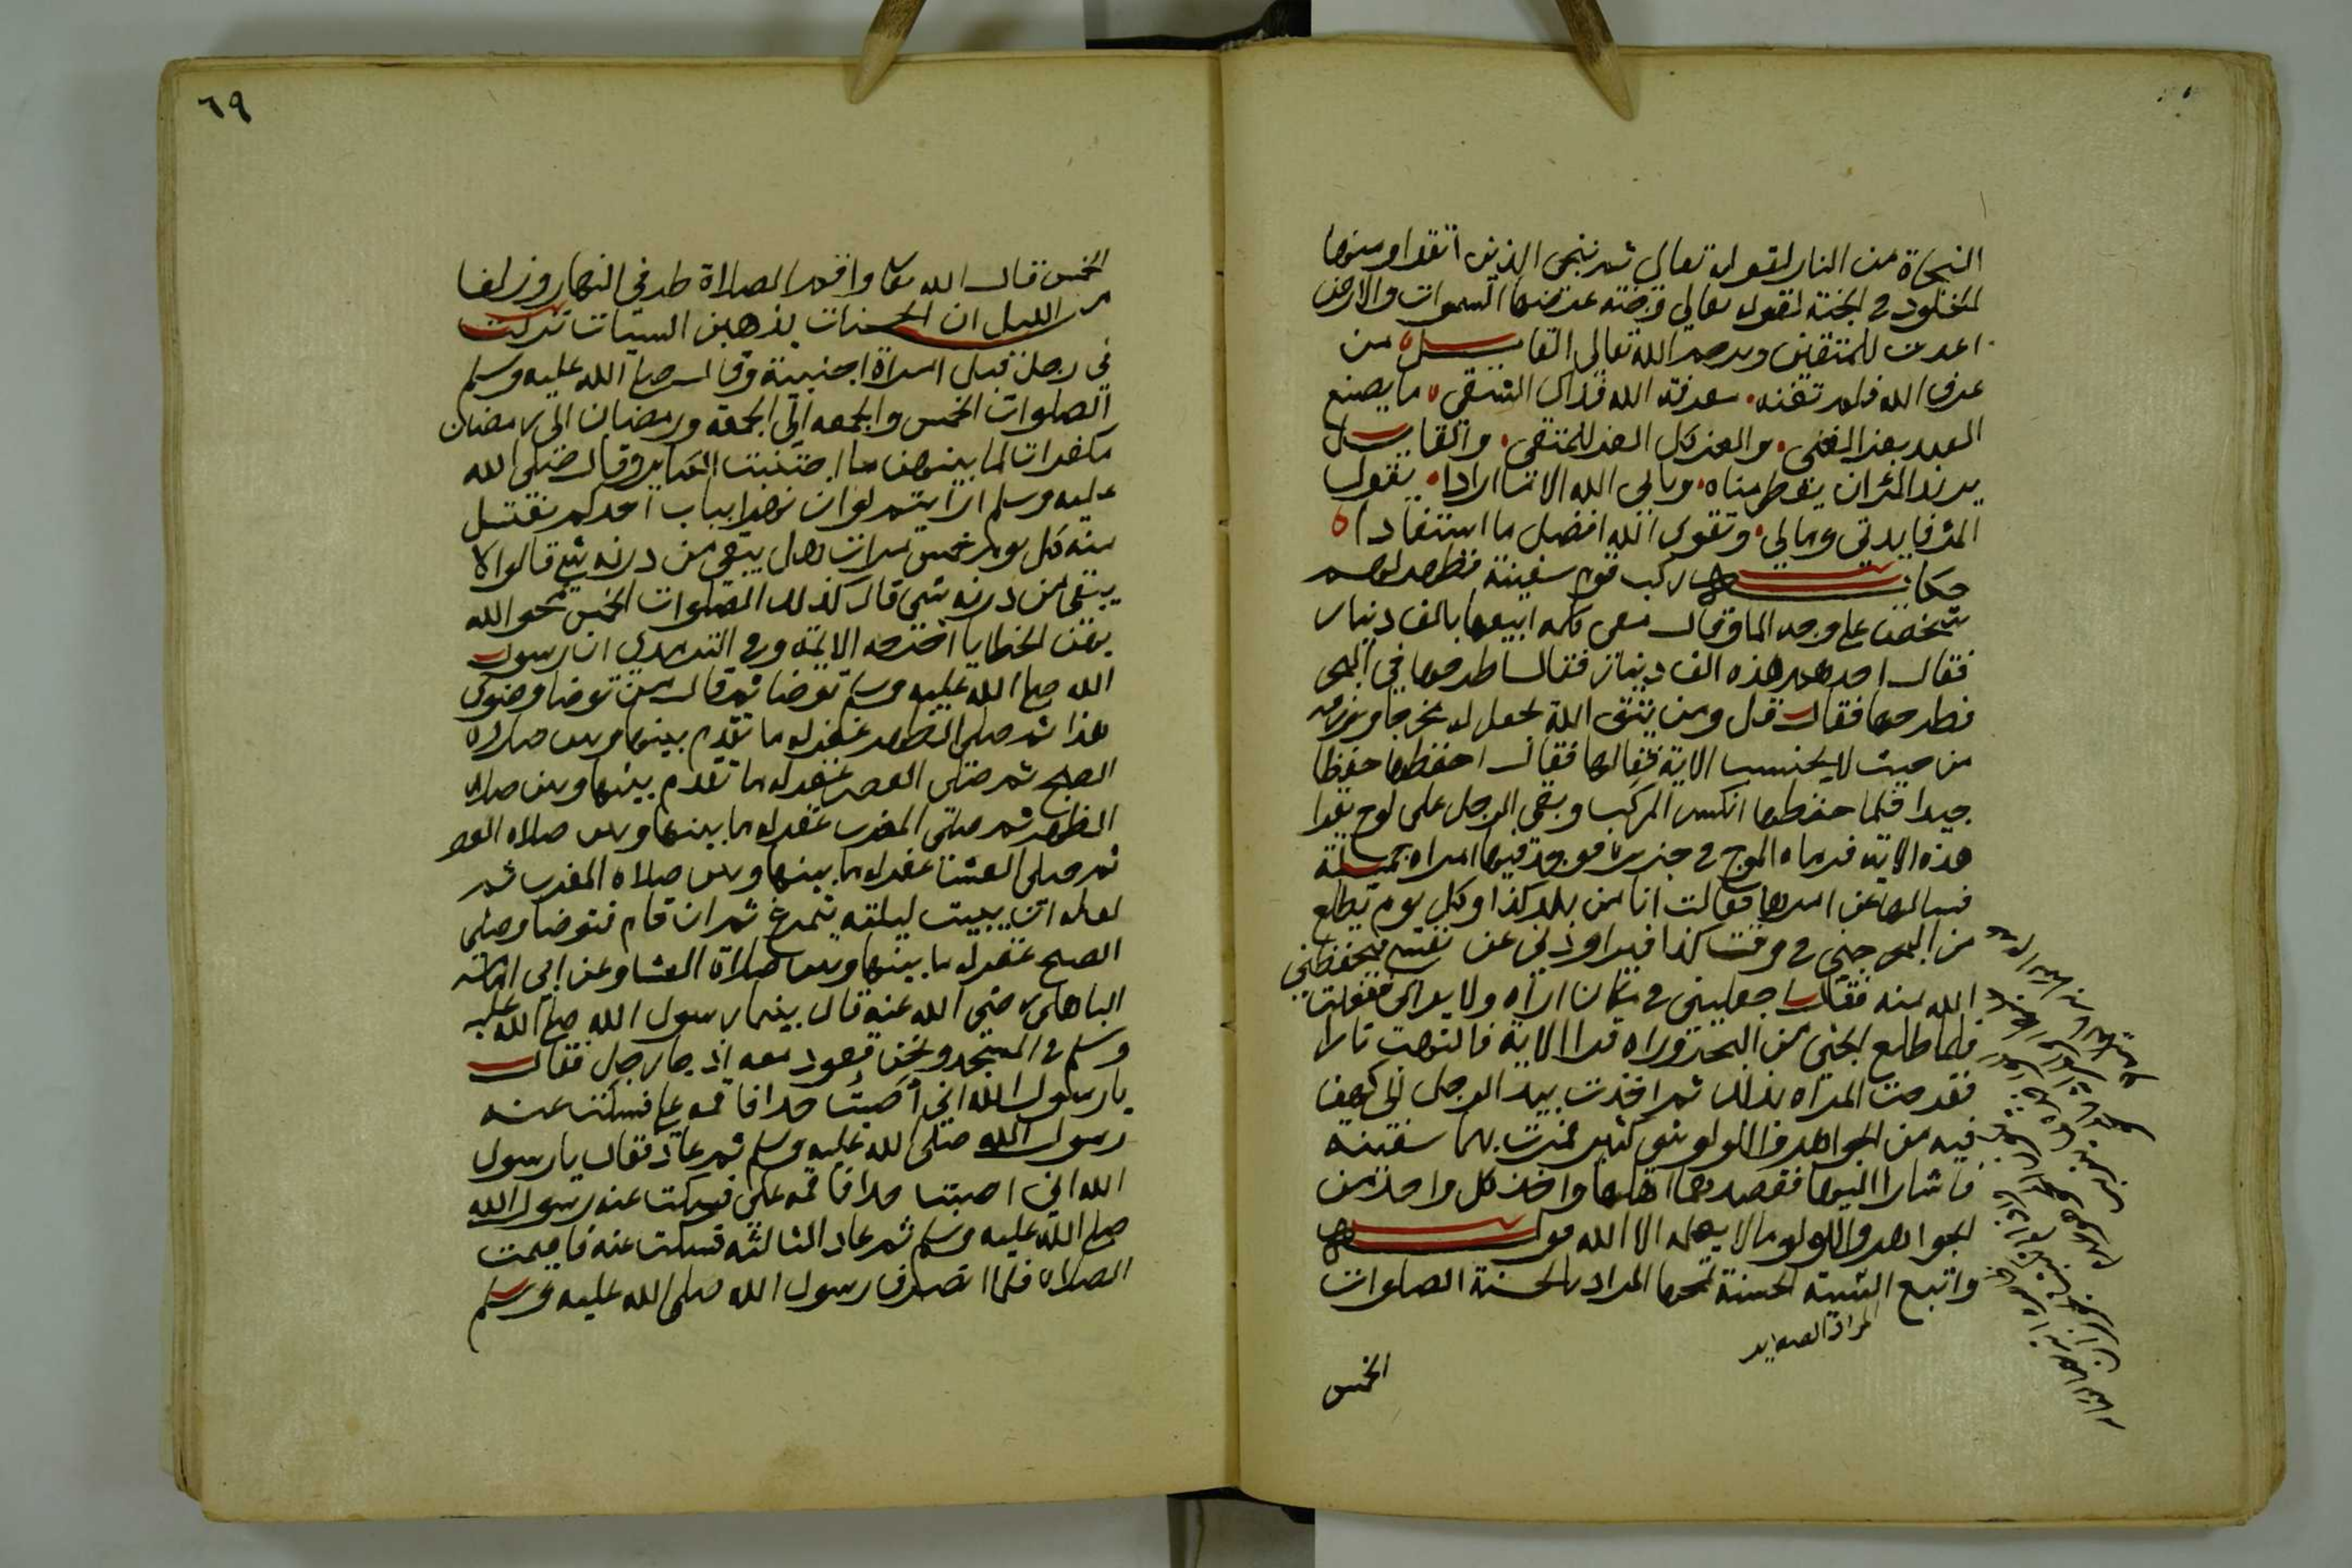 النجاة من النار لقوله تعالى ثم ننجي الذين اتقوا ومنها
الخلود في الجنة لقوله تعالى وجنة عرضها السموات والارض
اعدت للمتقين ورحم الله تعالى القايل من
عرف الله فلم تغنه معرفة الله فذاك الشقي ما يصنع
العبد بعز الغنى والعز كل العز للمتقي والقايل
يريد المرء ان يعطى مناه ويابى الله الا ما ارادا يقول
المرء فايدتي ومالي وتقوى الله افضل ما استفادا
حكاية ركب قوم سفينة فظهر لهم
شخص على وجه الما وقال معي كلمة ابيعها بالف دينار
فقال احدهم هذه الف دينار فقال اطرحها في البحر
فطرحها فقال قل ومن يتق الله يجعل له مخرجا ويرزقه
من حيث لا يحتسب الاية فقالها فقال احفظها حفظا
جيدا فلما حفظها انكسر المركب وبقي الرجل على لوح يقرا
هذه الاية فرماه الموج في جزيرة فوجد فيها امراة جميلة
فسالها عن امرها فقالت انا من بلد كذا وكل يوم يطلع
من البحر جني في وقت كذا فيراودني عن نفسي فيحفظني
الله منه فقال اجعليني في مكان اراه ولا يراني ففعلت
فلما طلع الجني من البحر وراه قرا الاية فالتهب نارا
ففرحت المراه بذلك ثم اخذت بيد الرجل الى كهف
فيه من الجواهر واللولو شي كثير فمرت بهما سفينة
فاشارا اليها فقصدهما اهلها واخذ كل واحد من
الجواهر واللولو ما لا يعلمه الا الله قوله
واتبع السيئة الحسنة تمحها المراد بالحسنة الصلوات
الخمس
٦٩
الخمس قال الله تعالى واقم الصلاة طرفي النهار وزلفا
من الليل ان الحسنات يذهبن السيات نزلت
في رجل قبل امراة اجنبية وقال صلى الله عليه وسلم
الصلوات الخمس والجمعه الى الجمعة ورمضان الى رمضان
مكفرات لما بينهن ما اجتنبت الكباير وقال صلى الله
عليه وسلم ارايتم لو ان نهرا بباب احدكم يغتسل
منه كل يوم خمس مرات هل يبقى من درنه شي قالوا لا
يبقى من درنه شي قال كذلك الصلوات الخمس يمحو الله
بهن الخطايا اخرجه الايمة وفي الترمذي ان رسول
الله صلى الله عليه وسلم توضا ثم قال من توضا وضوي
هذا ثم صلى الظهر غفر له ما تقدم بينها وبين صلاة
الصبح ثم صلى العصر غفر له ما تقدم بينها وبين صلاة
الظهر ثم صلى المغرب غفر له ما بينها وبين صلاه العصر
ثم صلى العشا غفر له ما بينها وبين صلاه المغرب ثم
لعله ان يبيت ليلته يتمرغ ثم ان قام فتوضا وصلى
الصبح غفر له ما بينها وبين صلاة العشا وعن ابي امامة
الباهلي رضي الله عنه قال بينما رسول الله صلى الله عليه
وسلم في المسجد ونحن قعود معه اذ جا رجل فقال
يا رسول الله اني اصبت حدا فاقمه علي فسكت عنه
رسول الله صلى الله عليه وسلم ثم عاد فقال يا رسول
الله اني اصبت حدا فاقمه علي فسكت عنه رسول الله
صلى الله عليه وسلم ثم عاد الثالثه فسكت عنه فاقيمت
الصلاه فلما انصرف رسول الله صلى الله عليه وسلم